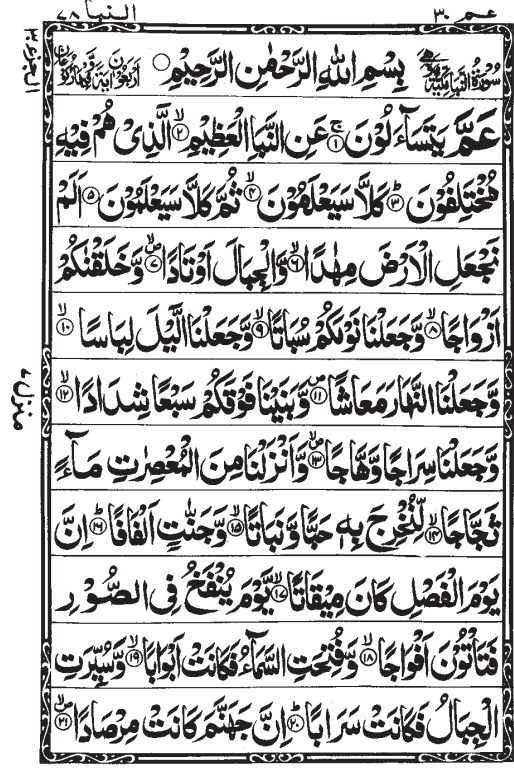 عم ٣٠ النبا ٧٨
سورة النبا مكية بِسْمِ اللهِ الرَّحْمٰنِ الرَّحِيْمِ
عَمَّ يَتَسَآءَلُوْنَ ۚ۝١ عَنِ النَّبَاِ الْعَظِيْمِ ۙ۝٢ الَّذِيْ هُمْ فِيْهِ
مُخْتَلِفُوْنَ ؕ۝٣ كَلَّا سَيَعْلَمُوْنَ ۙ۝٤ ثُمَّ كَلَّا سَيَعْلَمُوْنَ ۝٥ اَلَمْ
نَجْعَلِ الْاَرْضَ مِهٰدًا ۙ۝٦ وَّالْجِبَالَ اَوْتَادًا ۪ۙ۝٧ وَّخَلَقْنٰكُمْ
اَزْوَاجًا ۙ۝٨ وَّجَعَلْنَا نَوْمَكُمْ سُبَاتًا ۙ۝٩ وَّجَعَلْنَا الَّيْلَ لِبَاسًا ۙ۝١٠
وَّجَعَلْنَا النَّهَارَ مَعَاشًا ۪۝١١ وَّبَنَيْنَا فَوْقَكُمْ سَبْعًا شِدَادًا ۙ۝١٢
وَّجَعَلْنَا سِرَاجًا وَّهَّاجًا ۪ۙ۝١٣ وَّاَنْزَلْنَا مِنَ الْمُعْصِرٰتِ مَآءً
ثَجَّاجًا ۙ۝١٤ لِّنُخْرِجَ بِهٖ حَبًّا وَّنَبَاتًا ۙ۝١٥ وَّجَنّٰتٍ اَلْفَافًا ؕ۝١٦ اِنَّ
يَوْمَ الْفَصْلِ كَانَ مِيْقَاتًا ۙ۝١٧ يَّوْمَ يُنْفَخُ فِى الصُّوْرِ
فَتَاْتُوْنَ اَفْوَاجًا ۙ۝١٨ وَّفُتِحَتِ السَّمَآءُ فَكَانَتْ اَبْوَابًا ۙ۝١٩ وَّسُيِّرَتِ
الْجِبَالُ فَكَانَتْ سَرَابًا ؕ۝٢٠ اِنَّ جَهَنَّمَ كَانَتْ مِرْصَادًا ۪ۙ۝٢١
منزل ٧